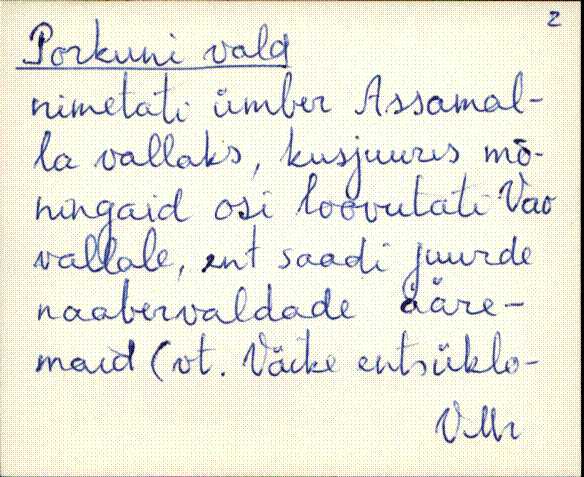 2
Porkuni vald
nimetati ümber Assamal-
la vallaks, kusjuures mõ-
ningaid osi loovutati Vao
vallale, ent saadi juurde
naabervaldade ääre-
maid (vt. Väike entsüklo-
VMr